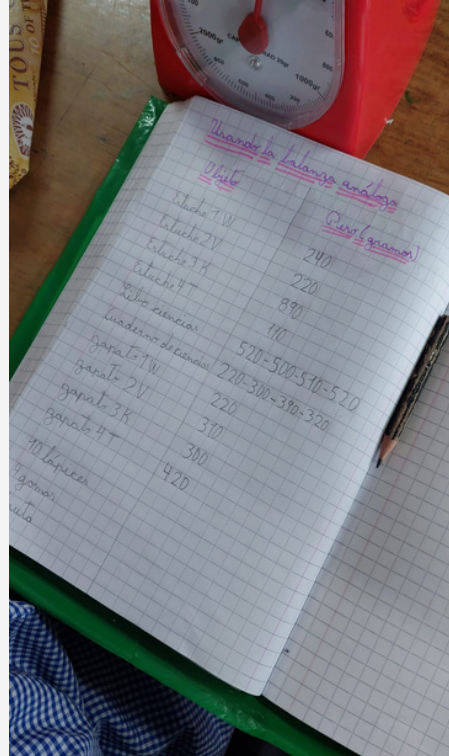 TOUS
Usando la balanza análoga
Objeto Peso (gramos)
Estuche 1 W 240
Estuche 2 V 220
Estuche 3 K 890
Estuche 4 T 110
Libro ciencias 520-500-510-520
Cuaderno de ciencias 220-300-390-320
zapato 1 W 220
zapato 2 V 310
zapato 3 K 300
zapato 4 T 420
10 lápices
4 gomas
2000gr
1000gr